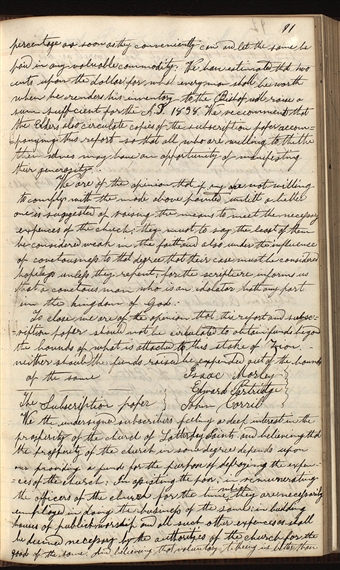 91
percentage as soon as they conveniently can and let the same be
paid in any valuable commodity. We have estimated that two
cents upon the dollar for what every man shall be worth
when he renders his inventory to the Bishop will raise a
sum sufficient for the A.D. 1838. We recommend that
the Elders also circulate copies of the subscription paper accom-
panying this report so that all who are willing to
themselves may have an opportunity of manifesting
their generosity.
We are of the opinion that if any are not willing
to comply with the mode above pointed out till a better
one is suggested of raising the means to meet the necessary
expences of the church; they must to say the least of them
be considered weak in the faith and also under the influence
of covetousness to that degree that their case must be considered
hopeless unless they repent; for the scripture informs us
that a covetous man who is an idolater hath not part
in the kingdom of God.
To close we are of the opinion that the report and subsc-
ription paper should not be circulated to obtain funds beyond
the bounds of what is attached to this stake of Zion,
neither should the funds raised be expended out of the bounds
of the same
Isaac Morley
Edward Partridge
John Corril
The Subscription paper
We the undersigned subscribers feeling a deep interest in the
prosperity of the church of Latter day Saints and believing that
the prosperity of the church in some degree depends upon
our providing a fund for the purpose of defraying the expen-
-ces of the church; In assisting the poor; in remunerating
the officers of the church for the time they are necessarily
employed in doing the business of the same; in building
houses of public worship and all such other expences as shall
be deemed necessary by the authorities of the church for the
good of the same. And believing that voluntary tithing is better than